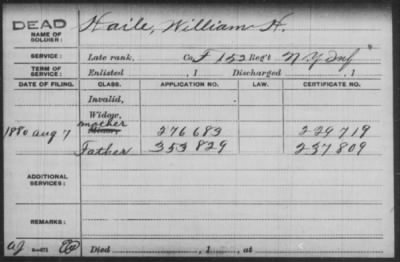 DEAD
NAME OF SOLDIER: Haile, William H.
SERVICE: Late rank, Co. F 152 Reg't N.Y. Inf
TERM OF SERVICE: Enlisted , 1 Discharged , 1
DATE OF FILING. CLASS. APPLICATION NO. LAW. CERTIFICATE NO.
Invalid,
Widow,
mother
1880 Aug 7 Minor, 276683 229719
Father 353829 237809
ADDITIONAL SERVICES:
REMARKS:
Died , 1 , at